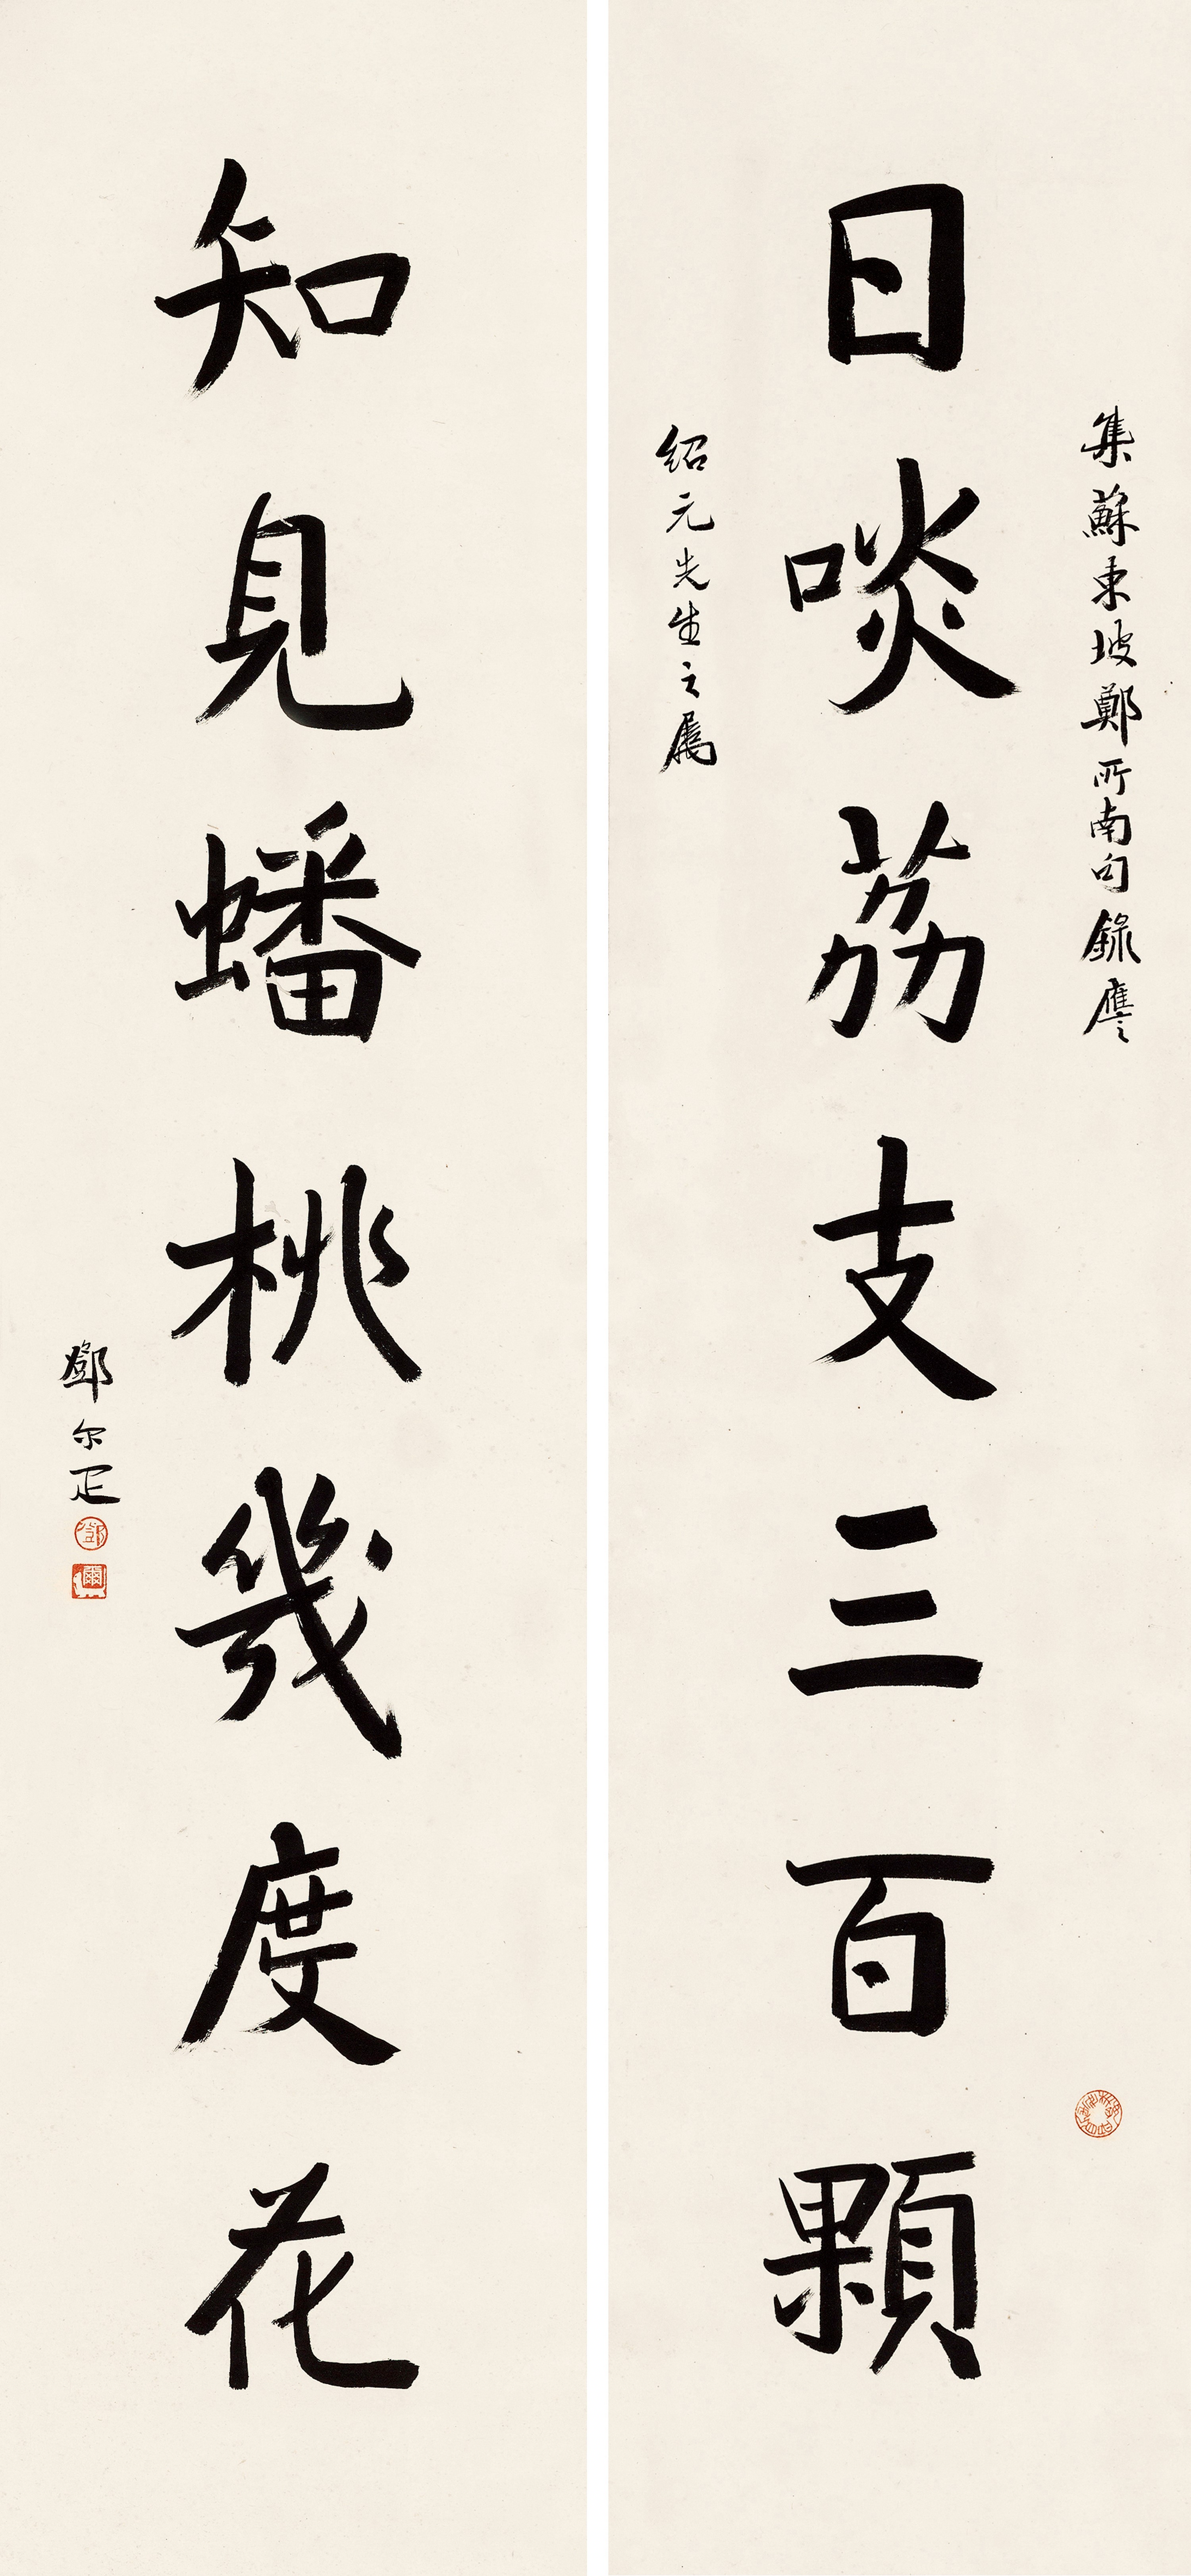 集蘇東坡鄭所南句錄應
日啖荔支三百顆
紹元先生之屬
知見蟠桃幾度花
鄧尔疋
鄧
爾